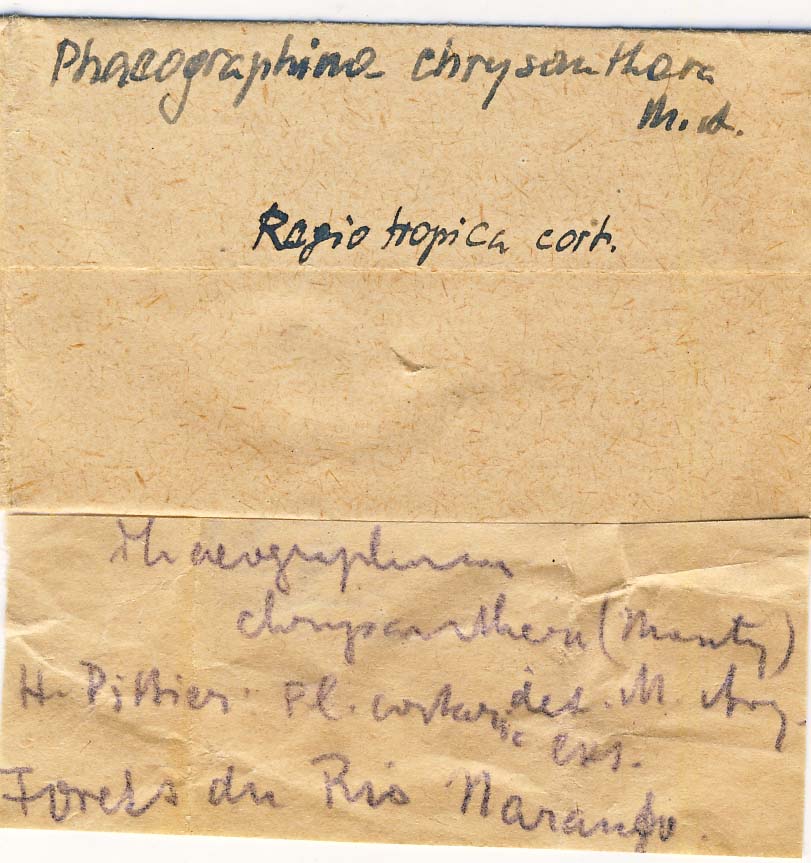 Phaeographina chrysanthera
M. A.
Regio tropica cort.
Phaeographina
chrysanthera (Mont)
H. Pittier Pl. costaric det. M. Arg.
exs.
Forets du Rio Naranjo.